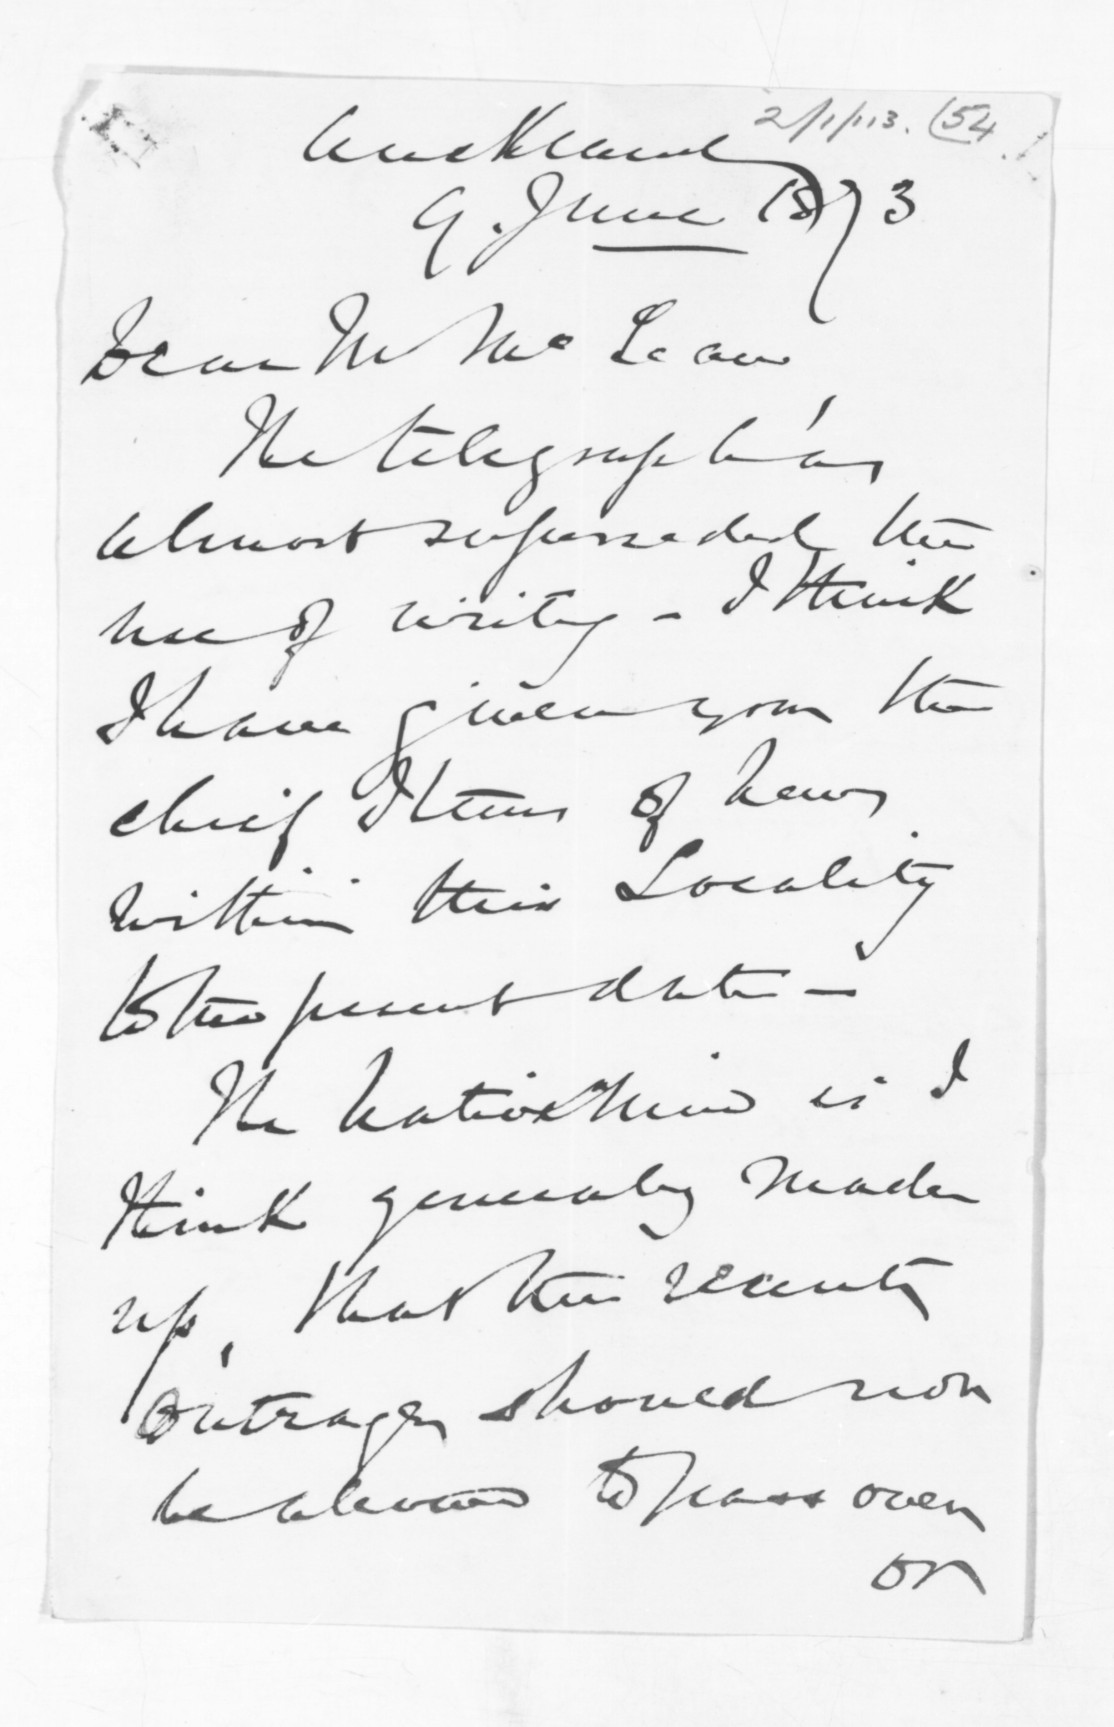 2/1/113. (54
Auckland
9. June 1873
Dear Mr McLean
The telegraph has
almost superseded the
use of writing - I think
I have given you the
chief Items of News
within this Locality
to the present date -
The Native Mind is I
think generally made
up, that the recent
Outrages should not
be allowed to pass over
or